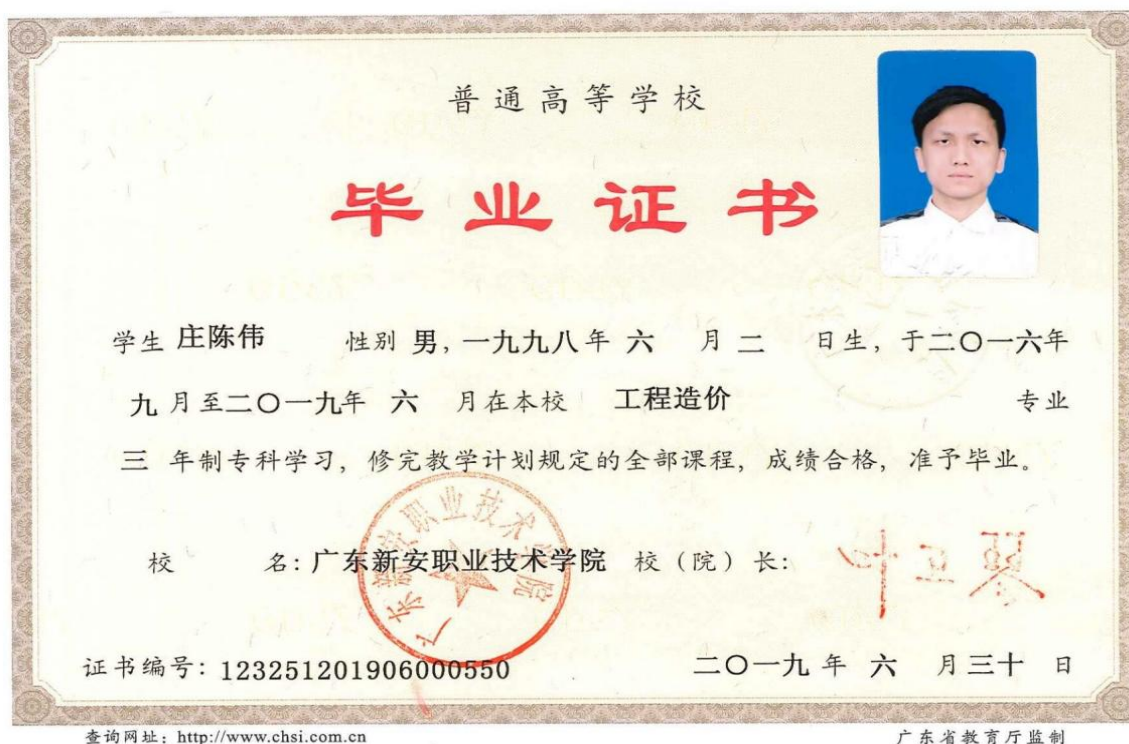 普通高等学校
毕业证书
学生 庄陈伟 性别 男，一九九八年 六 月 二 日生，于二〇一六年
九 月至二〇一九年 六 月在本校 工程造价 专业
三 年制专科学习，修完教学计划规定的全部课程，成绩合格，准予毕业。
广东新安职业技术学院
校 名：广东新安职业技术学院 校（院）长：
证书编号：123251201906000550 二〇一九 年 六 月三十 日
查询网址：http://www.chsi.com.cn 广东省教育厅监制